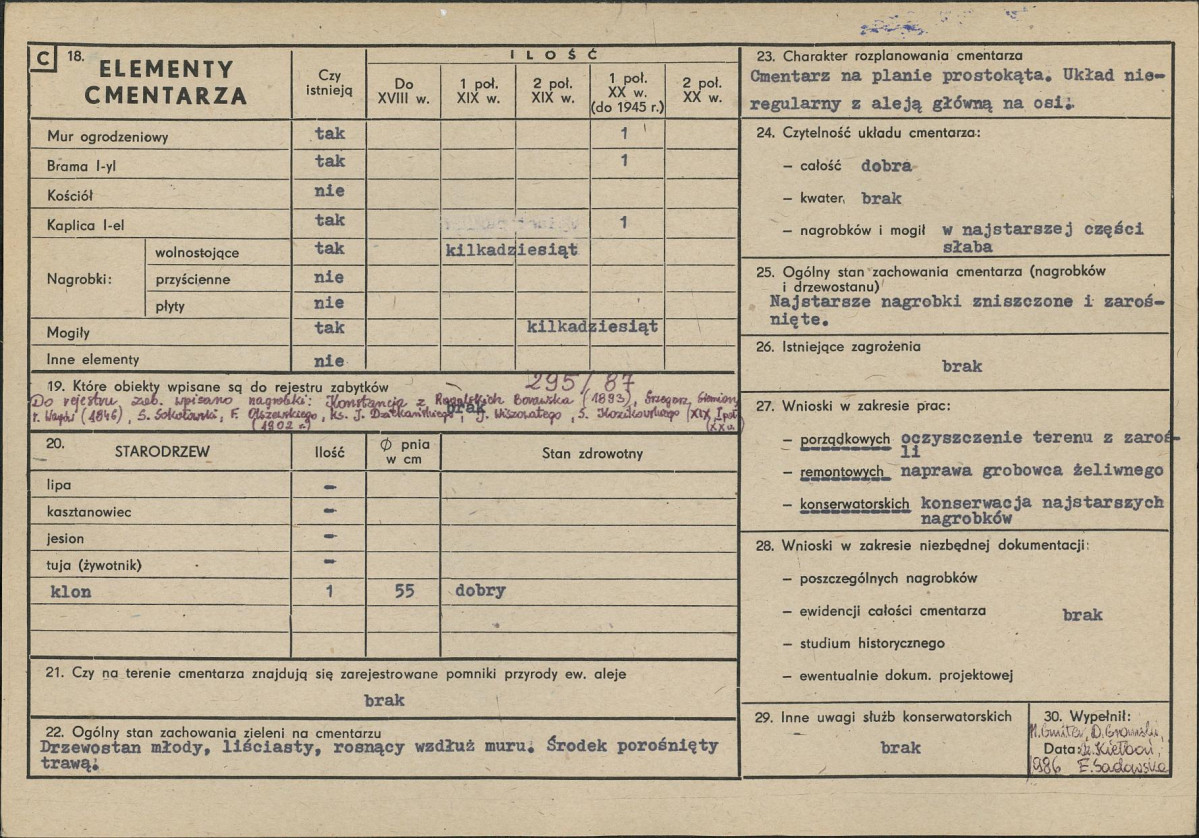 C 18. ELEMENTY CMENTARZA
Czy istnieją
ILOŚĆ
Do XVIII w.
1 poł. XIX w.
2 poł. XIX w.
1 poł. XX w. (do 1945 r.)
2 poł. XX w.
Mur ogrodzeniowy tak 1
Brama I-yl tak 1
Kościół nie
Kaplica I-el tak 1
Nagrobki:
wolnostojące tak kilkadziesiąt
przyścienne nie
płyty nie
Mogiły tak kilkadziesiąt
Inne elementy nie
19. Które obiekty wpisane są do rejestru zabytków 295/87
brak
Do rejestru zab. wpisano nagrobki: Konstancja z Borawska (1893), Grzegorz,
(1846), S. Sokołowski, F. Olszewskiego, ks. J. J. Wiszowatego, S. (XIX, I poł
(1902 r.) XX w.)
20. STARODRZEW Ilość Ø pnia w cm Stan zdrowotny
lipa –
kasztanowiec –
jesion –
tuja (żywotnik) –
klon 1 55 dobry
21. Czy na terenie cmentarza znajdują się zarejestrowane pomniki przyrody ew. aleje
brak
22. Ogólny stan zachowania zieleni na cmentarzu
Drzewostan młody, liściasty, rosnący wzdłuż muru. Środek porośnięty
trawą.
23. Charakter rozplanowania cmentarza
Cmentarz na planie prostokąta. Układ nie-
regularny z aleją główną na osi.
24. Czytelność układu cmentarza:
– całość dobra
– kwater. brak
– nagrobków i mogił w najstarszej części
słaba
25. Ogólny stan zachowania cmentarza (nagrobków
i drzewostanu)
Najstarsze nagrobki zniszczone i zaroś-
nięte.
26. Istniejące zagrożenia
brak
27. Wnioski w zakresie prac:
– porządkowych oczyszczenie terenu z zaroś-
li
– remontowych naprawa grobowca żeliwnego
– konserwatorskich konserwacja najstarszych
nagrobków
28. Wnioski w zakresie niezbędnej dokumentacji:
– poszczególnych nagrobków
– ewidencji całości cmentarza brak
– studium historycznego
– ewentualnie dokum. projektowej
29. Inne uwagi służb konserwatorskich
brak
30. Wypełnił:
Data:
986 E. Sadowska